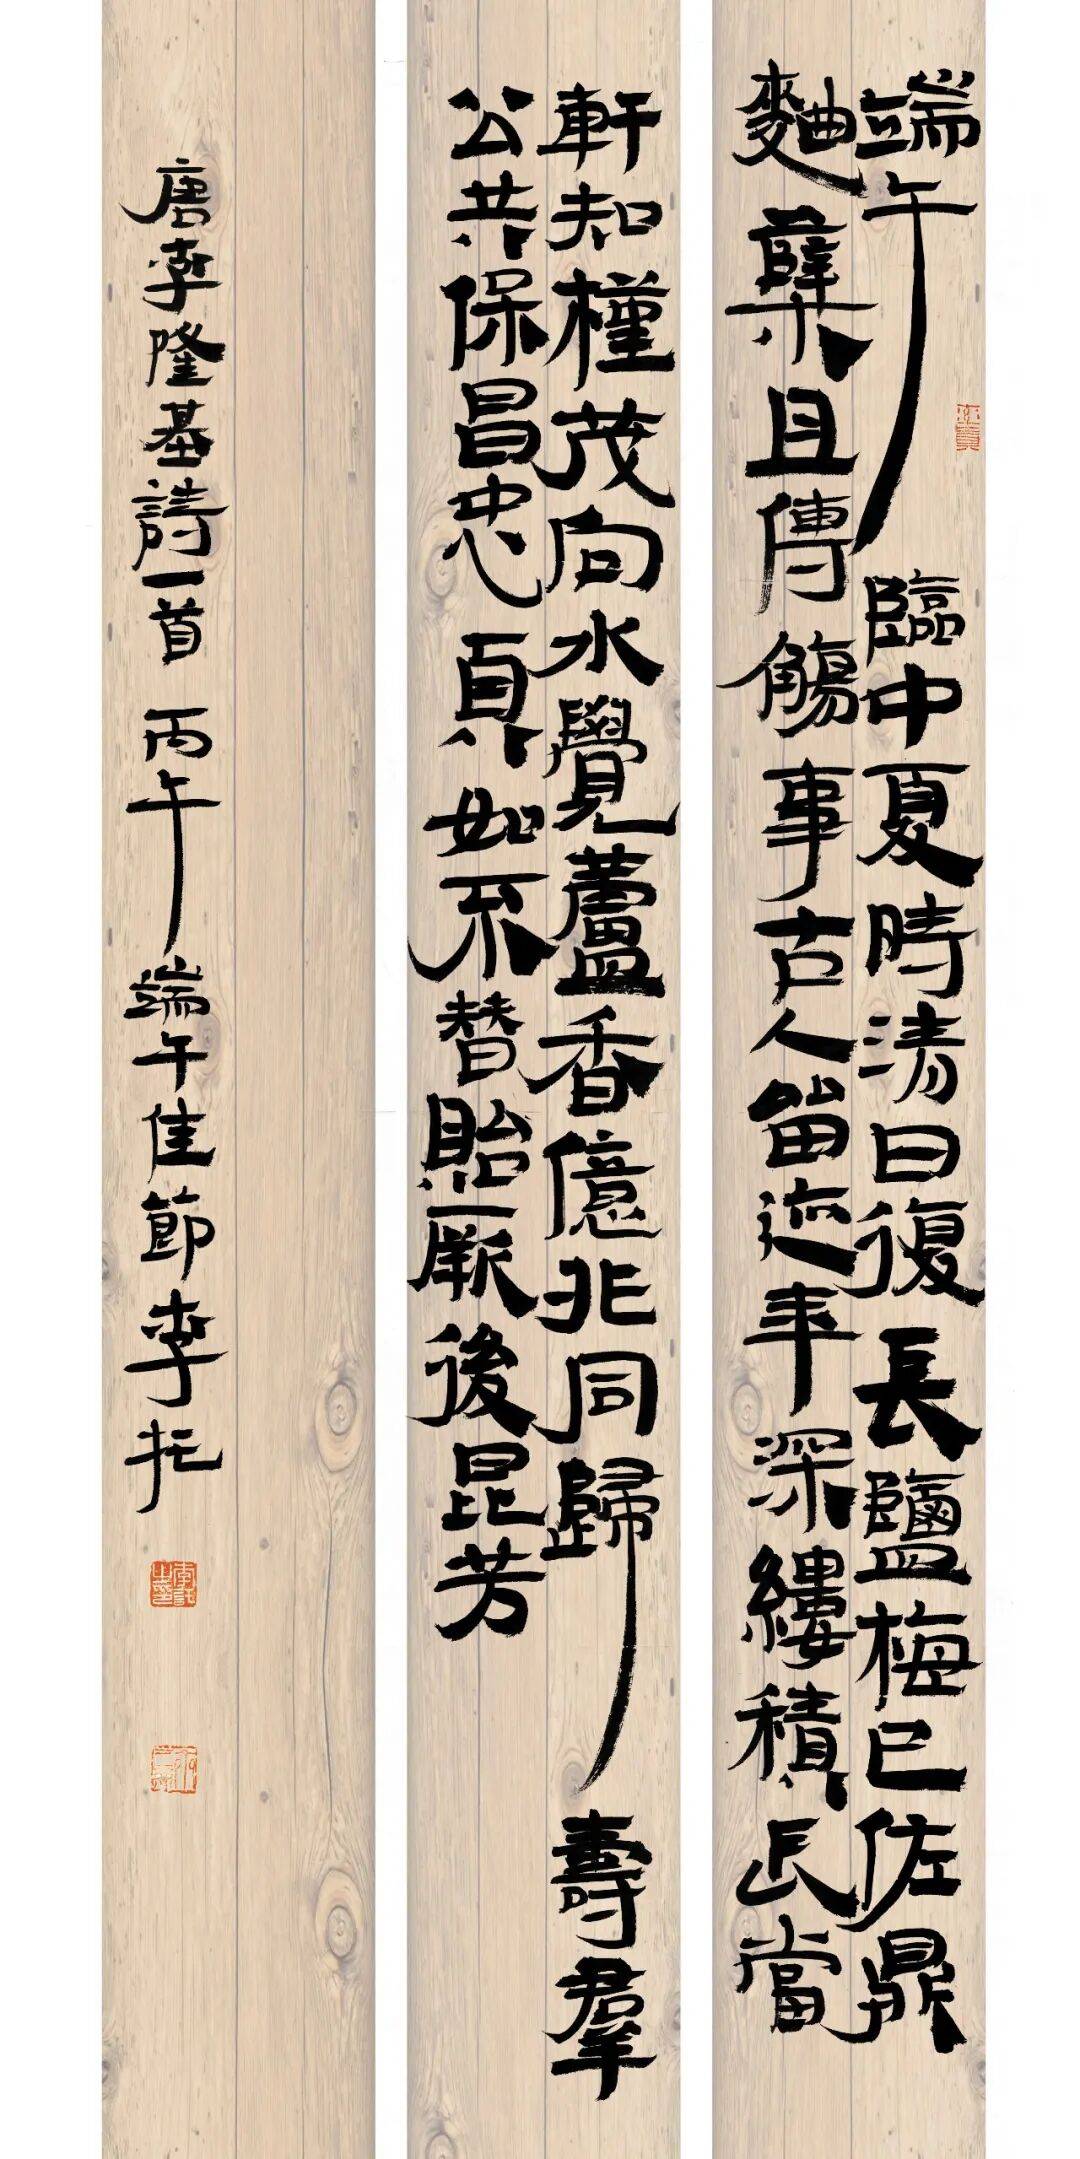 端午臨中夏時清日復長鹽梅已佐鼎
麯蘖且傳觴事古人留迹年深縷積長當
軒知槿茂向水覺蘆香億兆同歸壽羣
公共保昌忠貞如不替貽厥後昆芳
唐李隆基詩一首 丙午端午佳節李托